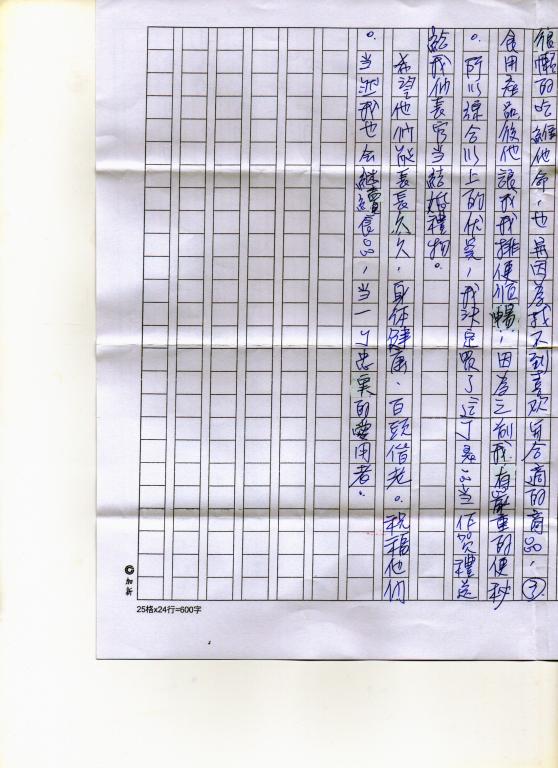 很懶的吃維他命，也是因為找不到喜欢与合適的商品，③
食用產品後他讓我我排便順暢，因為之前我有嚴重的便秘
。所以綜合以上的优点，我決定買了這个產品当作贺禮送
給我们長官当結婚禮物。
希望他们能長長久久，身体健康、百頭偕老。祝福他们
。当然我也会繼續食品，当一个忠實的愛用者。
加新
25格x24行=600字